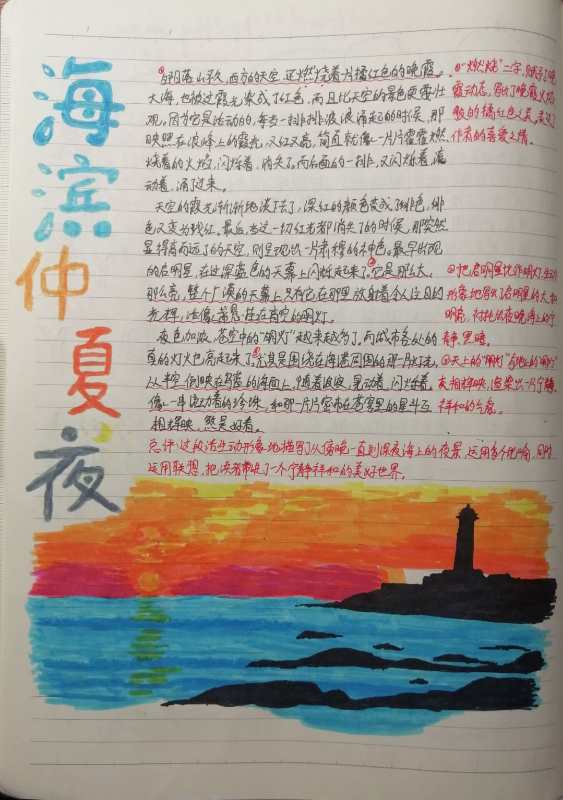 海滨仲夏夜
夕阳落山不久,西方的天空,还燃烧着一片橘红色的晚霞。
大海,也被这霞光染成了红色,而且比天空的景色更要壮
观。因为它是活动的,每当一排排波浪涌起的时候,那
映照在浪峰上的霞光,又红又亮,简直就像一片片霍霍燃
烧着的火焰,闪烁着,消失了。而后面的一排,又闪烁着,滚
动着,涌了过来。
天空的霞光渐渐地淡下去了,深红的颜色变成了绯红,绯
色又变为浅红。最后,当这一切红光都消失了的时候,那突然
显得高而远了的天空,则呈现出一片肃穆的神色。最早出现
的启明星,在这深蓝色的天幕上闪烁起来了。②它是那么大,
那么亮,整个广漠的天幕上只有它在那里放射着令人注目的
光辉,活像一盏悬挂在高空的明灯。
夜色加浓,苍空中的“明灯”越来越多了。而城市各处的
真的灯火也亮起来了,③尤其是围绕在海港周围的那一片灯光,
从半空倒映在乌蓝的海面上,随着波浪,晃动着,闪烁着,
像一串流动着的珍珠,和那一片片密布在苍穹里的星斗互
相辉映,煞是好看。
①“燃烧”二字,赋予了晚
霞动态,写出了晚霞火焰
般的橘红色之美,表达
作者的喜爱之情。
②把启明星比作明灯,生动
形象地写出启明星的大和
明亮,衬托出夜晚海上的宁
静、黑暗。
③天上的“明灯”与地上的“明灯”
交相辉映,渲染出一片宁静、
祥和的气息。
总评:这段话生动形象地描写了从傍晚一直到深夜海上的夜景,运用多个比喻,同时
运用联想,把读者带进了一个宁静祥和的美好世界。